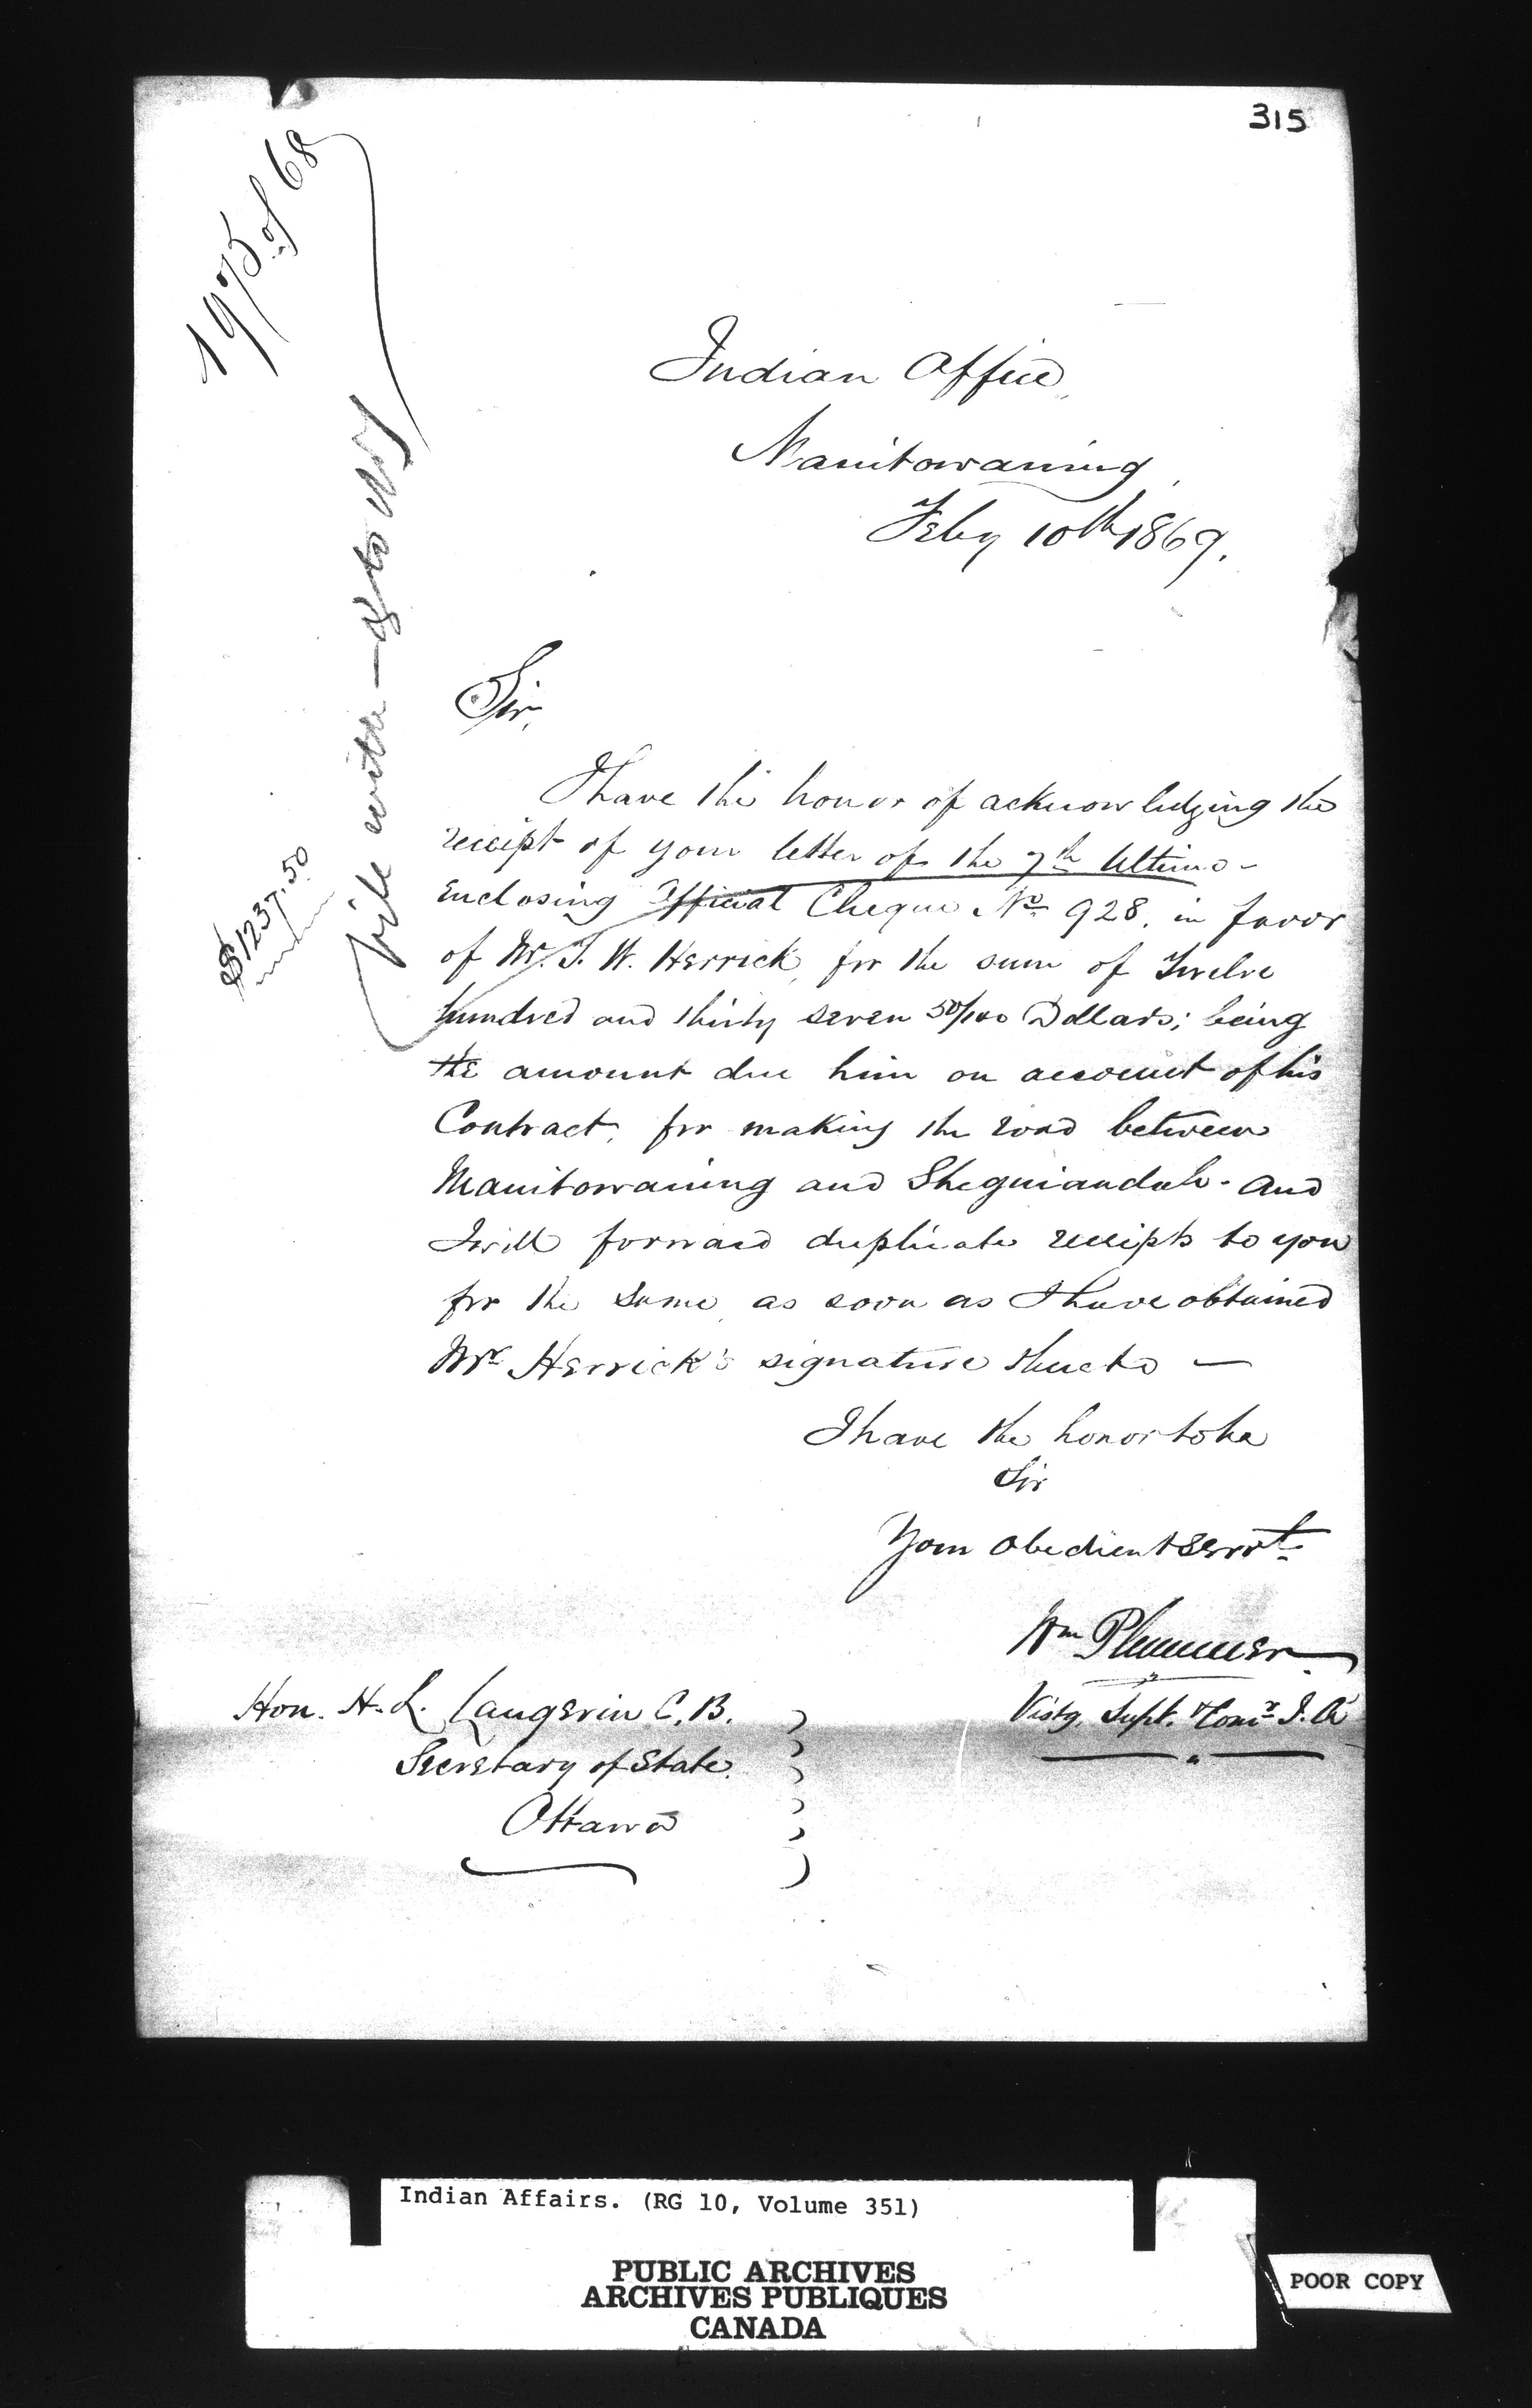 315
1975 of 68
file with
$1237.50
Indian Office,
Manitowaning,
Feby 10th 1869.
Sir,
I have the honor of acknowledging the
receipt of your letter of the 7th Ultimo -
enclosing Official Cheque No. 928, in favor
of Mr. T. W. Herrick, for the sum of Twelve
hundred and thirty seven 50/100 Dollars; being
the amount due him on account of his
Contract, for making the road between
Manitowaning and Sheguiandah - and
I will forward duplicate receipts to you
for the same, as soon as I have obtained
Mr Herrick's signature thereto —
I have the honor to be
Sir
Your Obedient Servt.
Wm Plummer
Vistg. Supt. & Comr. I. A.
Hon. H. L. Langevin C. B.
Secretary of State
Ottawa
Indian Affairs. (RG 10, Volume 351)
PUBLIC ARCHIVES
ARCHIVES PUBLIQUES
CANADA
POOR COPY